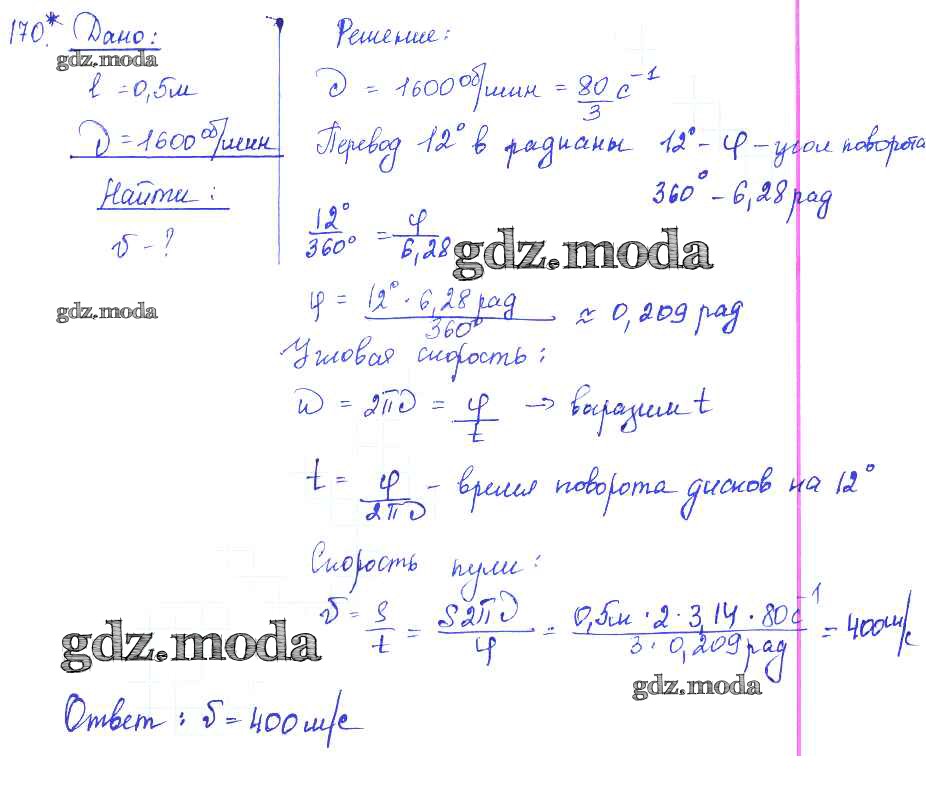 170.* Дано:
gdz.moda
l = 0,5м
ν = 1600 об/мин
Найти:
υ - ?
gdz.moda
Решение:
ν = 1600 об/мин = 80/3 с⁻¹
Перевод 12° в радианы 12° - φ - угол поворота
360° - 6,28 рад
12°/360° = φ/6,28
gdz.moda
φ = 12° · 6,28 рад / 360° ≈ 0,209 рад
Угловая скорость:
ω = 2πν = φ/t → выразим t
t = φ/2πν - время поворота дисков на 12°
Скорость пули:
υ = S/t = S2πν/φ = 0,5м · 2 · 3,14 · 80с⁻¹ / 3 · 0,209 рад = 400м/с
gdz.moda
gdz.moda
Ответ: υ = 400 м/с